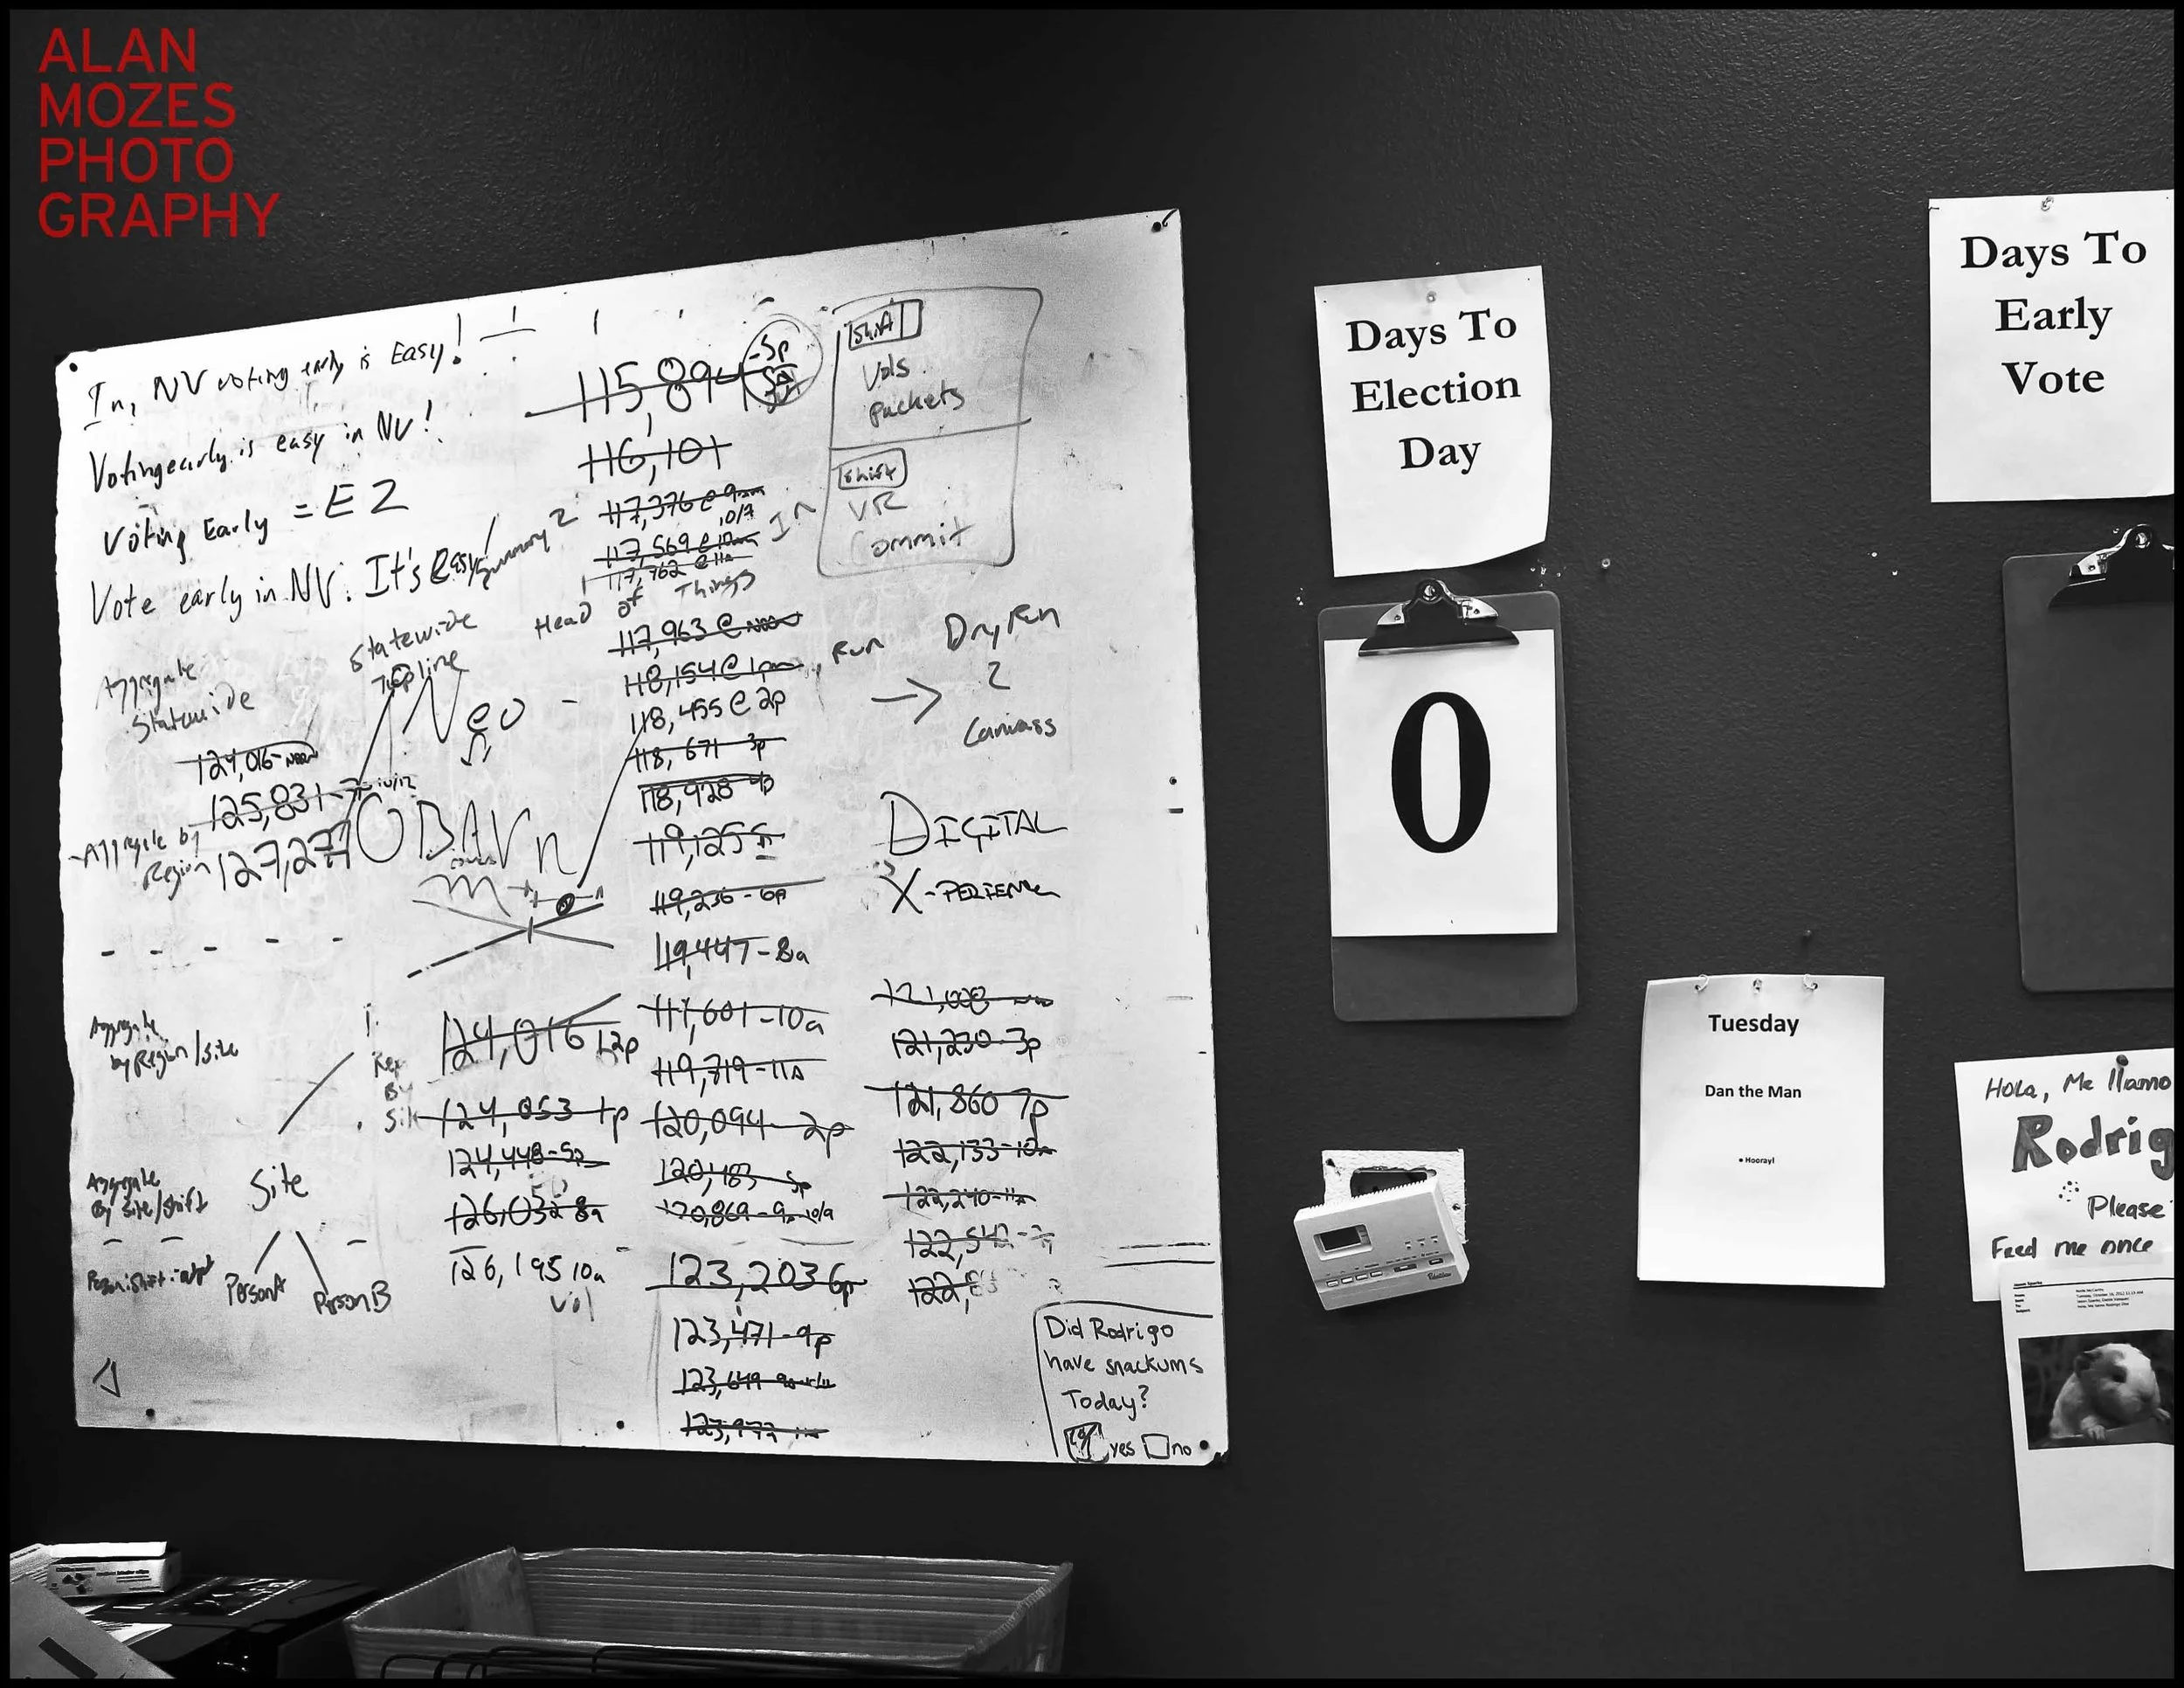 ALAN
MOZES
PHOTO
GRAPHY
In, NV voting early is Easy!
Voting early is easy in NV!
Voting Early = EZ
Vote early in NV. It's easy!
Summary 2
Statewide
Topline
Aggregate
Statewide
124,016-noon
125,831
Aggregate by
Region
127,277
Neo
OBAVn
Aggregate
by Region/Site
Aggregate
By Site/Shift
Site
Person A
Person B
124,016 12p
124,053 1p
124,448-5p
126,032 8a
126,195 10a
Vol
115,894
116,101
117,376 @ 9am
10/7
117,569 @ 10am
117,762 @ 11a
Head of Things
117,963 @ noon
118,154 @ 1pm
118,455 @ 2p
118,671 3p
118,928 4p
119,125
119,236-6p
119,447-8a
119,601-10a
119,719-11a
120,094-2p
120,483 5p
120,869-9a 10/9
123,203 6p
123,471-9p
123,649
123,972
Shift
Vols
Packets
Shift
VR
Commit
Run
Dry Run
2
Canvass
DIGITAL
X-PERIENCE
121,008
121,230-3p
121,860 7p
122,133-10a
122,240-11a
122,542
Did Rodrigo
have snackums
Today?
yes no
Days To
Election
Day
0
Days To
Early
Vote
Tuesday
Dan the Man
• Hooray!
Hola, Me llamo
Rodrig
Please
Feed me once